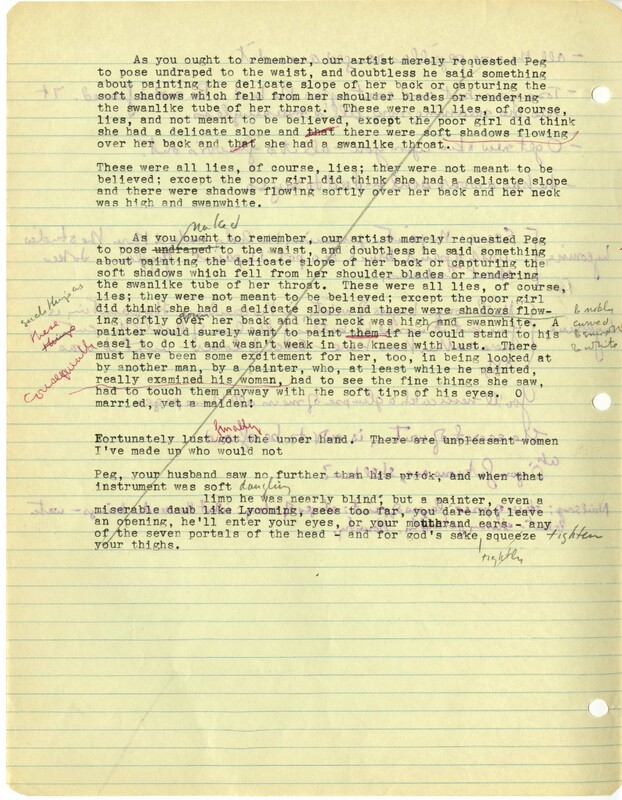 As you ought to remember, our artist merely requested Peg
to pose undraped to the waist, and doubtless he said something
about painting the delicate slope of her back or capturing the
soft shadows which fell from her shoulder blades or rendering
the swanlike tube of her throat. These were all lies, of course,
lies, and not meant to be believed, except the poor girl did think
she had a delicate slope and that there were soft shadows flowing
over her back and that she had a swanlike throat.
These were all lies, of course, lies; they were not meant to be
believed; except the poor girl did think she had a delicate slope
and there were shadows flowing softly over her back and her neck
was high and swanwhite.
naked
As you ought to remember, our artist merely requested Peg
to pose undraped to the waist, and doubtless he said something
about painting the delicate slope of her back or capturing the
soft shadows which fell from her shoulder blades or rendering
the swanlike tube of her throat. These were all lies, of course,
lies; they were not meant to be believed; except the poor girl
did think she had a delicate slope and there were shadows flow-
ing softly over her back and her neck was high and swanwhite. A
such things as
these
things
consequently
& nobly
curved
& white
painter would surely want to paint them if he could stand to his
easel to do it and wasn't weak in the knees with lust. There
must have been some excitement for her, too, in being looked at
by another man, by a painter, who, at least while he painted,
really examined his woman, had to see the fine things she saw,
had to touch them anyway with the soft tips of his eyes. O
married, yet a maiden!
finally
Fortunately lust got the upper hand. There are unpleasant women
I've made up who would not
Peg, your husband saw no further than his prick, and when that
instrument was soft dangling
limp he was nearly blind; but a painter, even a
miserable daub like Lycoming, sees too far, you dare not leave
an opening, he'll enter your eyes, or your mouth and ears - any
of the seven portals of the head - and for god's sake, squeeze tighten
your thighs. tightly